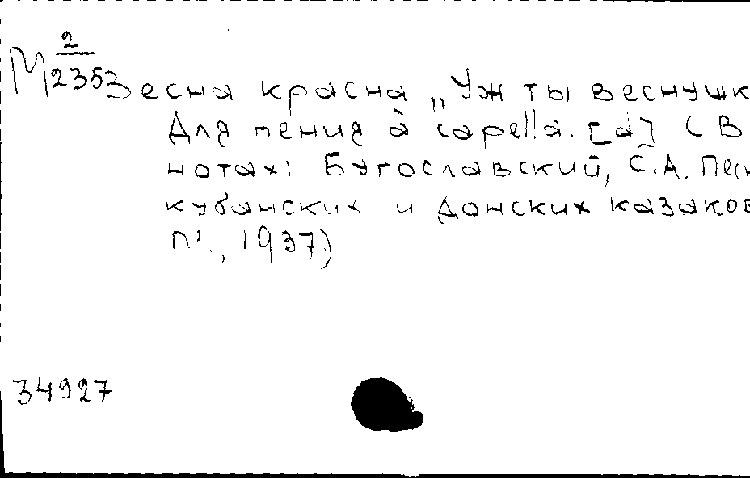 М 2/2353
Весна красна „Уж ты веснушк
Для пения à capella. [d] (В
нотах: Бугославский, С.А. Песн
кубанских и донских казаков
М., 1937)
34927